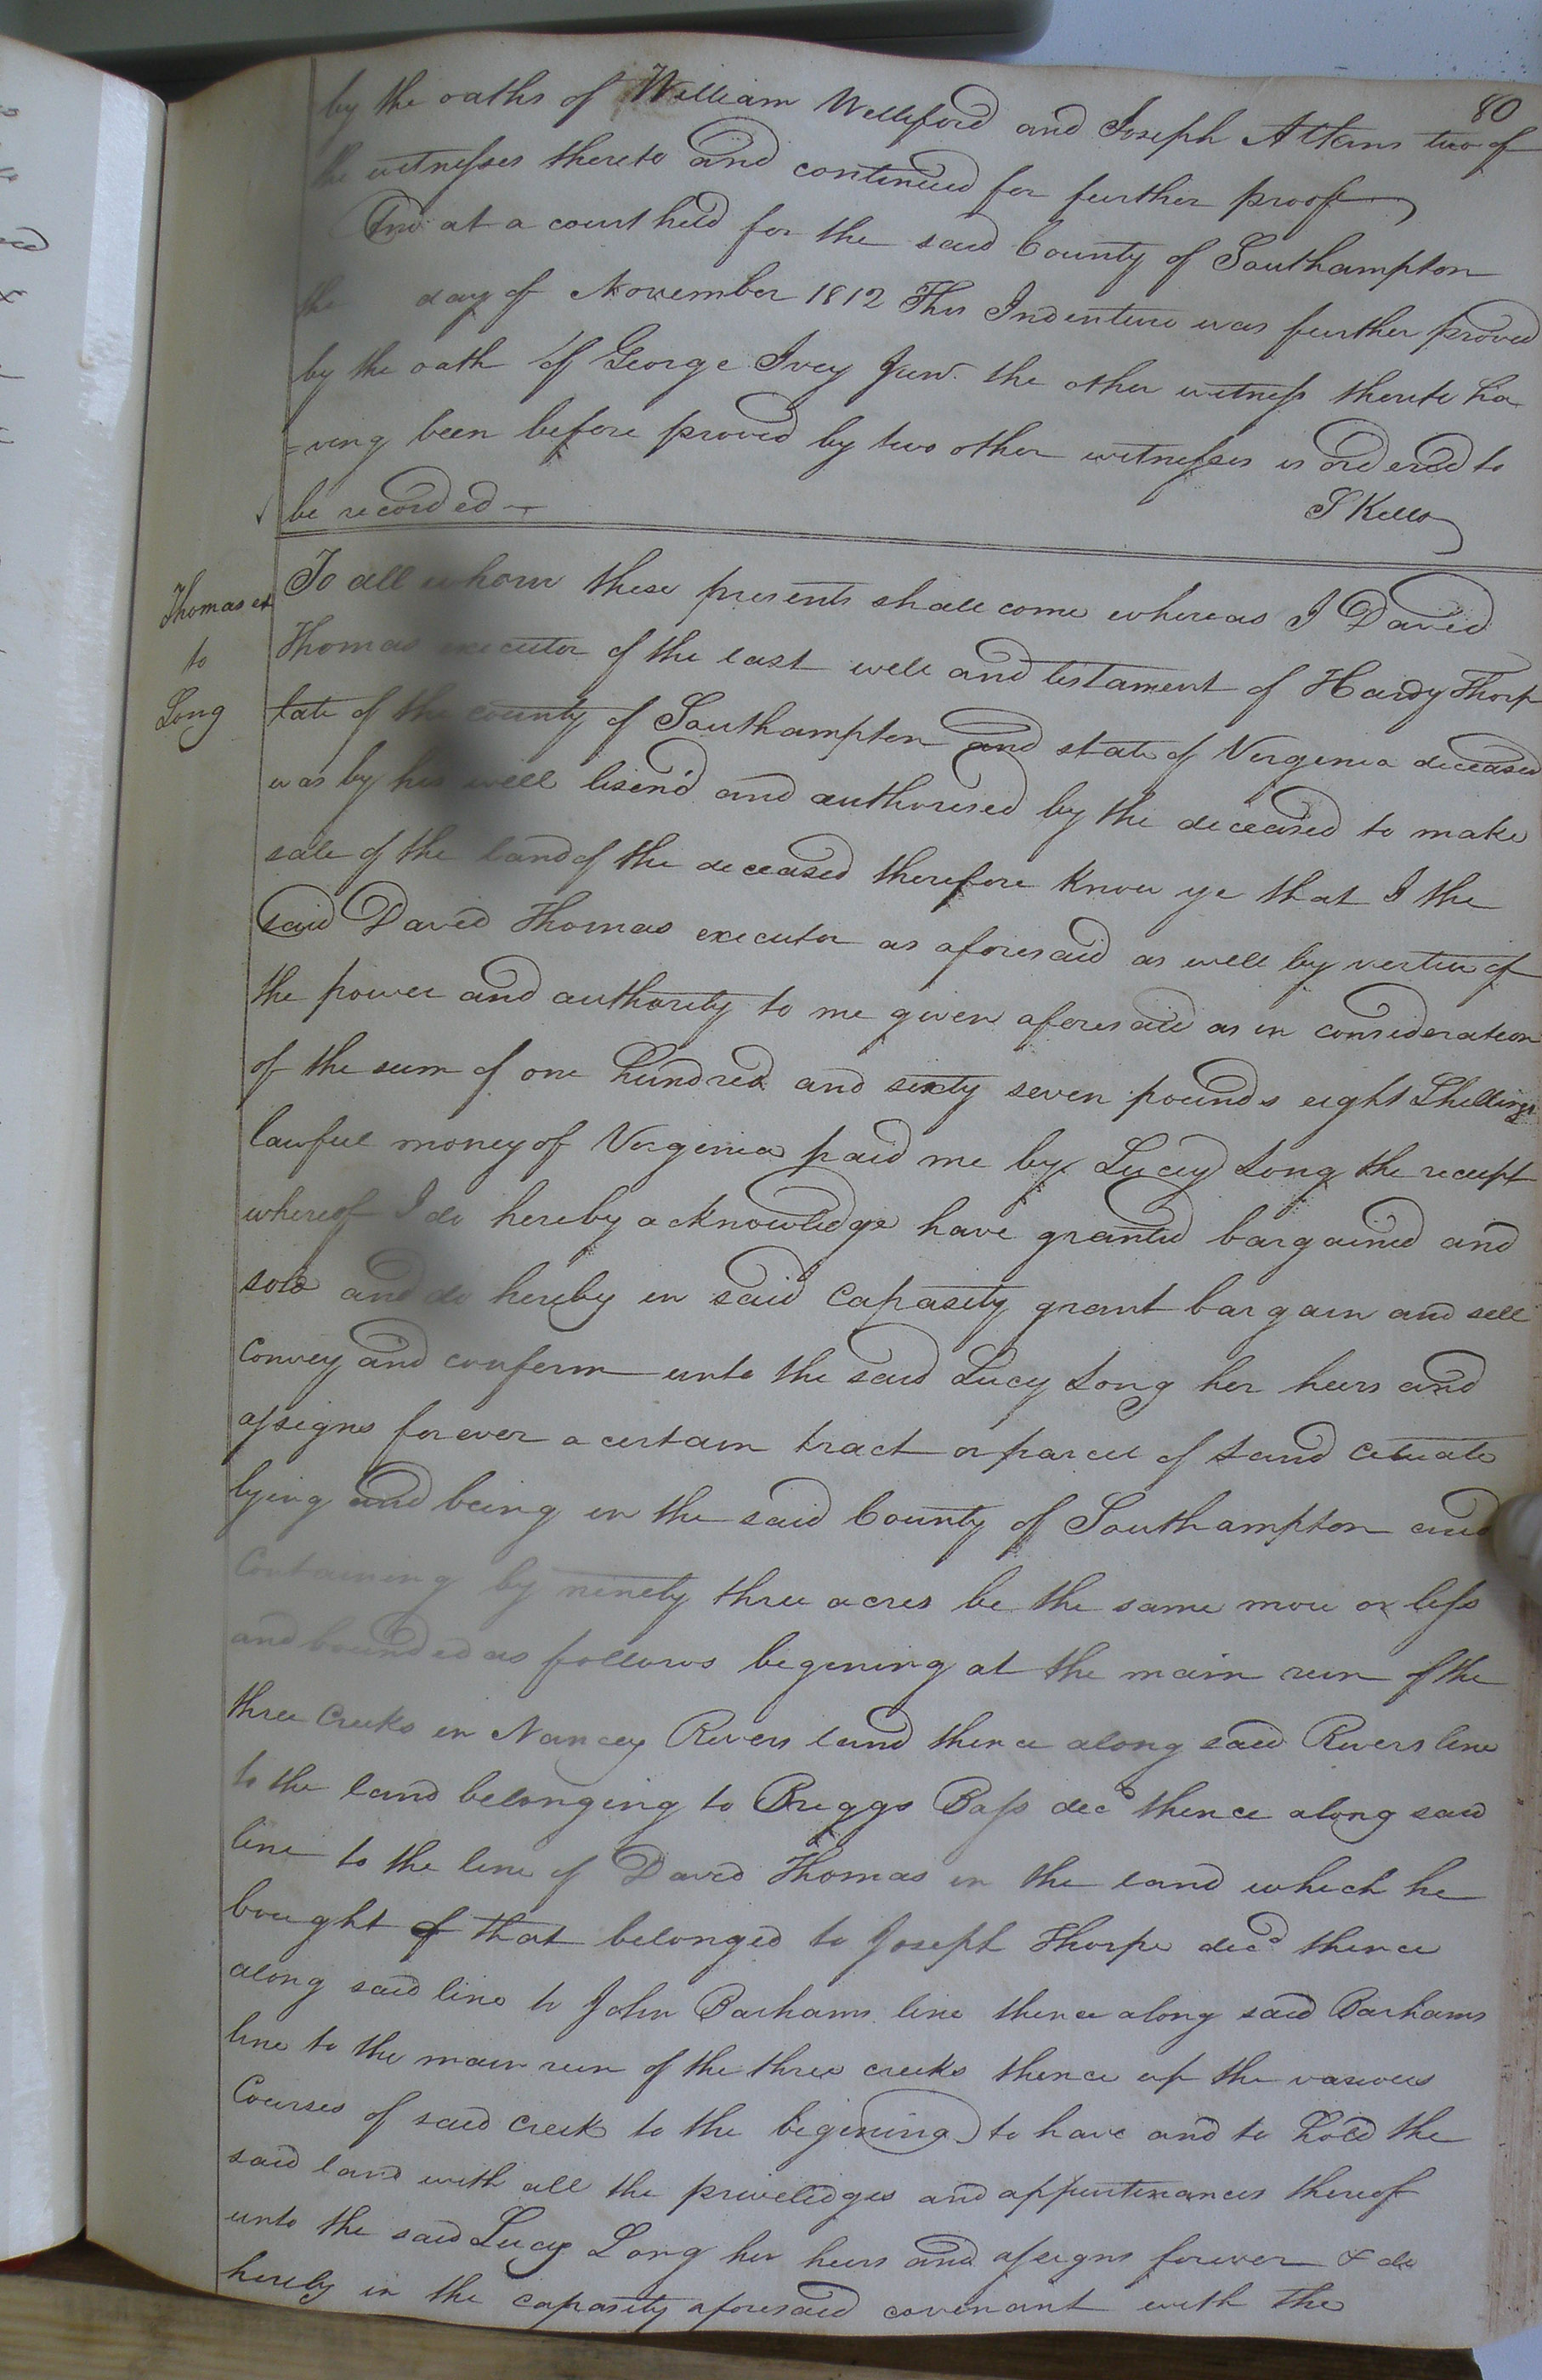 80
by the oaths of William Welliford and Joseph Atkins two of
the witnesses thereto and continued for further proof
And at a court held for the said County of Southampton
the day of November 1812 This Indenture was further proved
by the oath of George Ivey Junr. the other witness thereto ha
-ving been before proved by two other witnesses is ordered to
be recorded
S Kello
Thomas ex
to
Long
To all whom these presents shall come whereas I David
Thomas executor of the last will and testament of Hardy Thorp
late of the county of Southampton and state of Virginia deceased
was by his will lisend and authorised by the deceased to make
sale of the land of the deceased therefore know ye that I the
said David Thomas executor as aforesaid as well by vertue of
the power and authority to me given aforesaid as in consideration
of the sum of one hundred and sixty seven pounds eight Shillings
lawfull money of Virginia paid me by Lucy Long the receipt
whereof I do hereby acknowledge have granted bargained and
sold and do hereby in said Capasity grant bargain and sell
Convey and confirm unto the said Lucy Long her heirs and
assigns forever a certain tract or parcel of Land cituate
lying and being in the said County of Southampton and
Containing by ninety three acres be the same more or less
and bounded as follows begening at the main run of the
three Creeks in Nancey Rivers land thence along said Rivers line
to the land belonging to Briggs Bass decd thence along said
line to the line of David Thomas in the land which he
bought of that belonged to Joseph Thorpe decd thence
along said line to John Barhams line thence along said Barhams
line to the main run of the three creeks thence up the various
Courses of said Creek to the begening to have and to hold the
said land with all the priveledges and appurtenances thereof
unto the said Lucy Long her heirs and assigns forever & do
hereby in the capasity aforesaid covenant with the